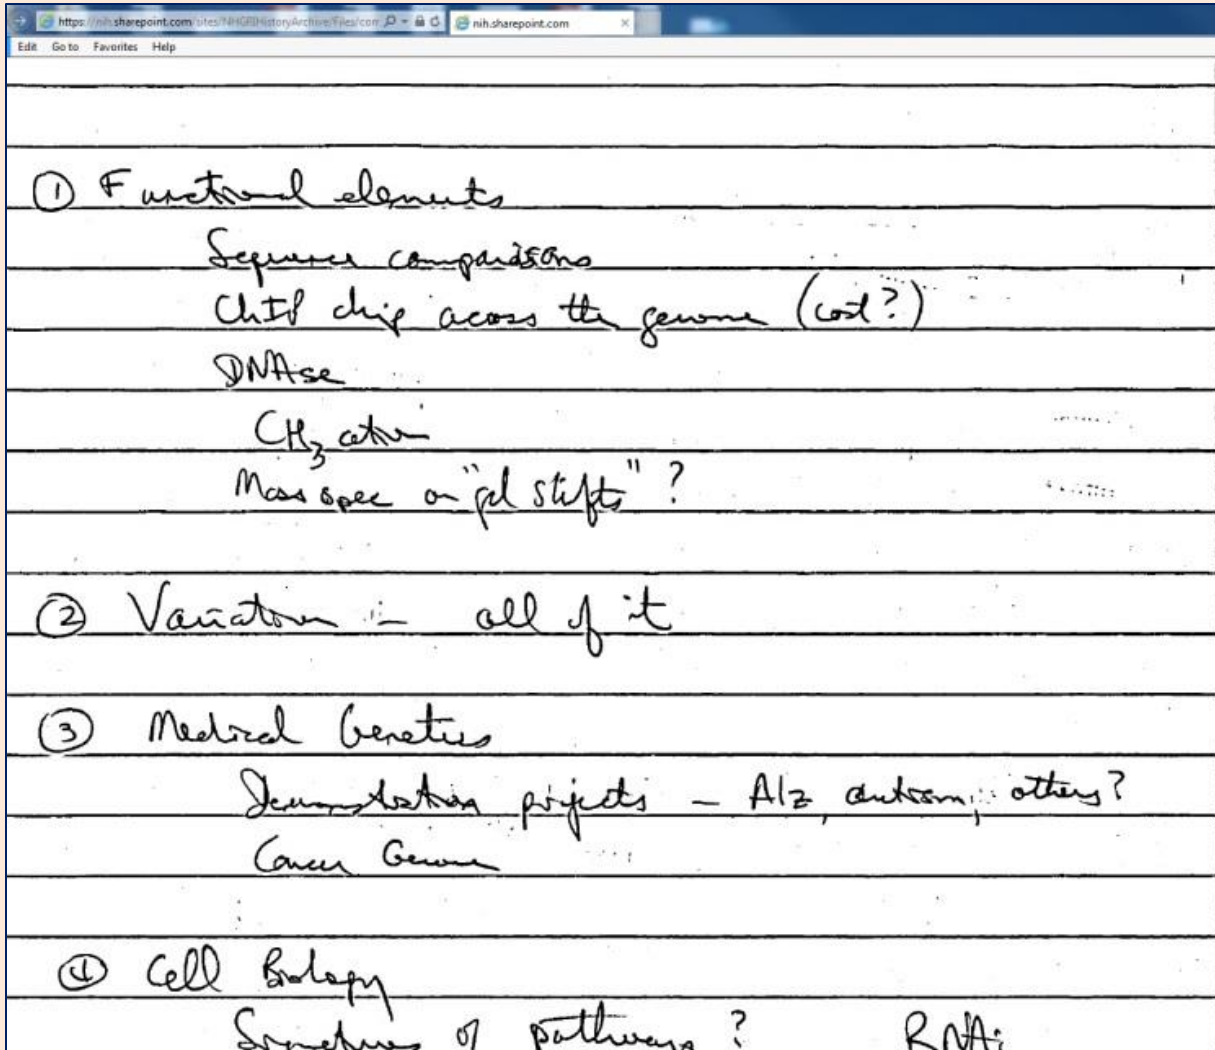 https://nih.sharepoint.com/sites/NHGRIHistoryArchive/Files/com
nih.sharepoint.com
Edit Go to Favorites Help
① Functional elements
Sequence comparisons
ChIP chip across the genome (cost?)
DNAse
CH3 ation
Mass spec on "gel shifts" ?
② Variation - all of it
③ Medical Genetics
Demonstration projects - Alz, autism, others?
Cancer Genome
④ Cell Biology
of pathways ? RNAi